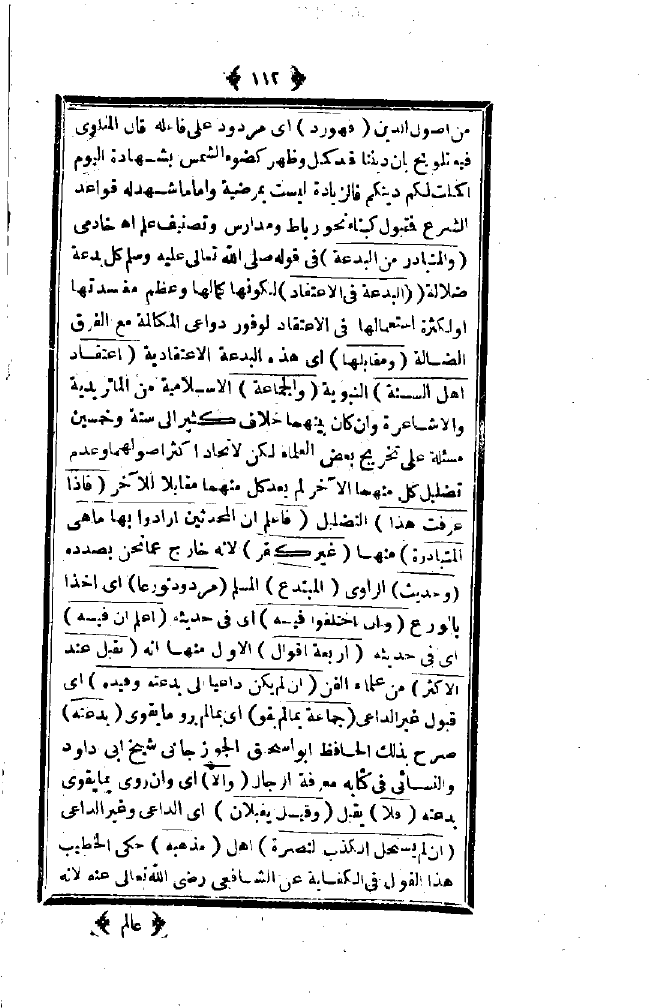 ﴿ ١١٢ ﴾
من اصول الدين ( فهورد ) اى مردود على فاعله قال المناوى
فيه تلويح بان ديننا قد كمل وظهر كضوء الشمس بشهادة اليوم
اكملت لكم دينكم فالزيادة ليست بمرضية واما ما شهد له قواعد
الشرع فقبول كبناء نحو رباط ومدارس وتصنيف علم اه خادمى
( والمتبادر من البدعة ) فى قوله صلى الله تعالى عليه وسلم كل بدعة
ضلالة ( البدعة فى الاعتقاد ) لكونها كمالها وعظم مفسدتها
او لكثرة استعمالها فى الاعتقاد لوفور دواعى المكالمة مع الفرق
الضالة ( ومقابلها ) اى هذه البدعة الاعتقادية ( اعتقاد
اهل السنة ) النبوية ( والجماعة ) الاسلامية من الماتريدية
والاشاعرة وان كان بينهما خلاف كثير الى ستة وخمسين
مسئلة على تخريج بعض العلماء لكن لاتحاد اكثر اصولهما وعدم
تضليل كل منهما الآخر لم يعد كل منهما مقابلا للآخر ( فاذا
عرفت هذا ) التضليل ( فاعلم ان المحدثين ارادوا بها ماهى
المتبادرة ) منها ( غير كفر ) لانه خارج عما نحن بصدده
( وحديث ) الراوى ( المبتدع ) المسلم ( مردود تورعا ) اى اخذا
بالورع ( وان اختلفوا فيه ) اى فى حديثه ( اعلم ان فيه )
اى فى حديثه ( اربعة اقوال ) الاول منها انه ( يقبل عند
الاكثر ) من علماء الفن ( ان لم يكن داعيا الى بدعته وقيده ) اى
قبول غير الداعى ( جماعة بما لم يقو ) اى بما لم يرو ما يقوى ( بدعته )
صرح بذلك الحافظ ابو اسحق الجوزجانى شيخ ابى داود
والنسائى فى كتابه معرفة الرجال ( والا ) اى وان روى بما يقوى
بدعته ( فلا ) يقبل ( وقيل يقبلان ) اى الداعى وغير الداعى
( ان لم يستحل الكذب لنصرة ) اهل ( مذهبه ) حكى الخطيب
هذا القول فى الكفاية عن الشافعى رضى الله تعالى عنه لانه
﴿ عالم ﴾